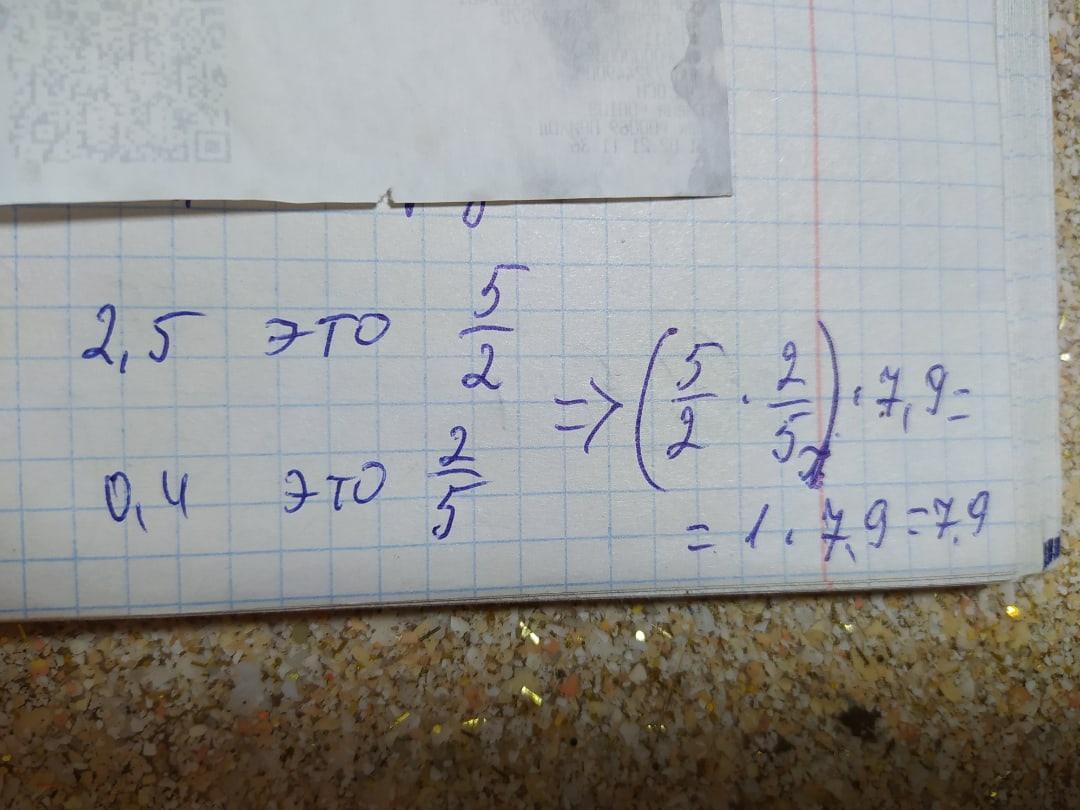 2,5 это 5/2
0,4 это 2/5
=> (5/2 · 2/5) · 7,9 =
= 1 · 7,9 = 7,9